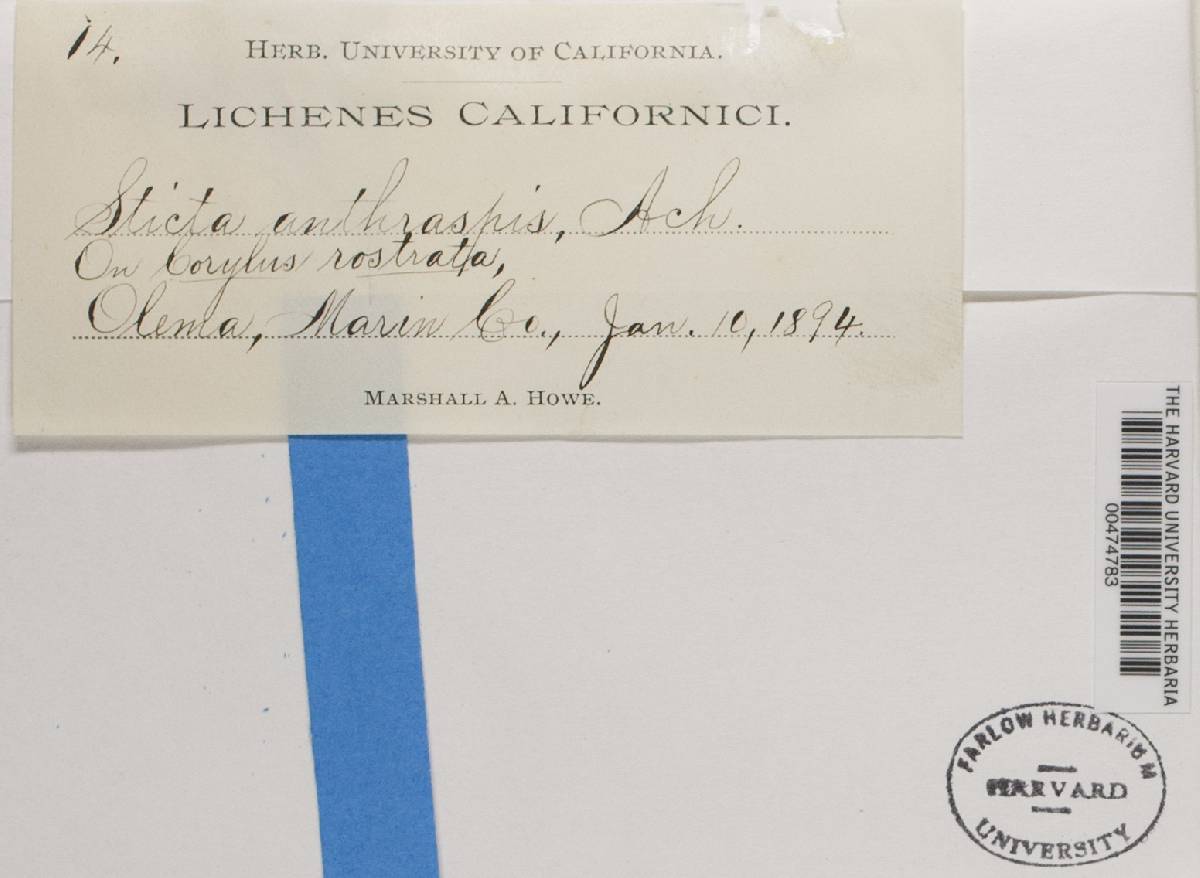 14.
HERB. UNIVERSITY OF CALIFORNIA.
LICHENES CALIFORNICI.
Sticta anthraspis, Ach.
On Corylus rostrata,
Olema, Marin Co., Jan. 10, 1894.
MARSHALL A. HOWE.
THE HARVARD UNIVERSITY HERBARIA
00474783
FARLOW HERBARIUM
HARVARD
UNIVERSITY